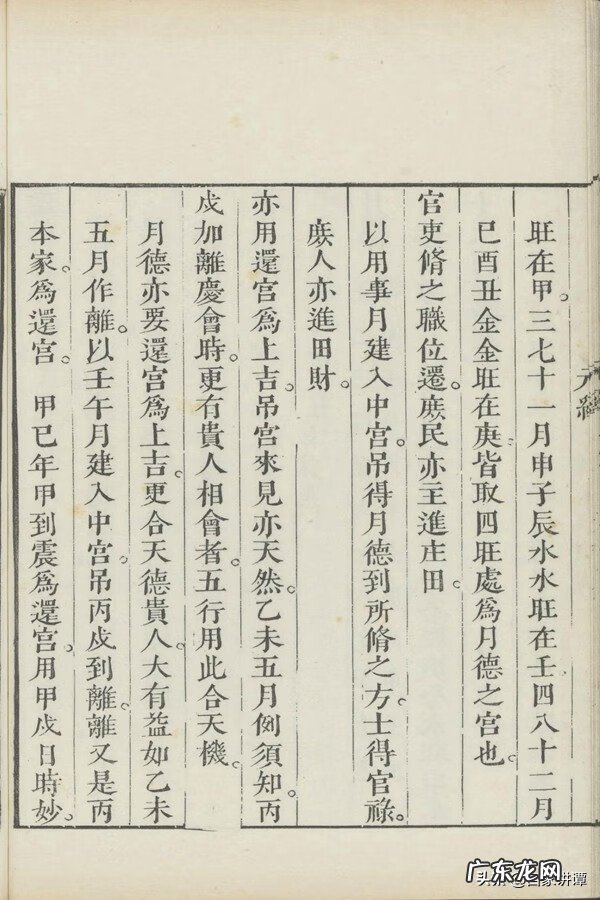 旺在甲。三七十一月申子辰水水旺在壬四八十二月
巳酉丑金金旺在庚皆取四旺處爲月德之宮也。
官吏脩之職位遷。庶民亦主進庄田。
以用事月建入中宮。吊得月德到所脩之方士得官祿。
庶人亦進田財。
亦用還宮爲上吉吊宮來見亦天然。乙未五月例須知。丙
戌加離慶會時。更有貴人相會者。五行用此合天機。
月德亦要還宮爲上吉。更合天德貴人。大有益如乙未
五月作離。以壬午月建入中宮。吊丙戌到離。離又是丙
本家。爲還宮。 甲巳年甲到震爲還宮。用甲戌日時妙。
元經
广东龙网
头条 @国家讲谭